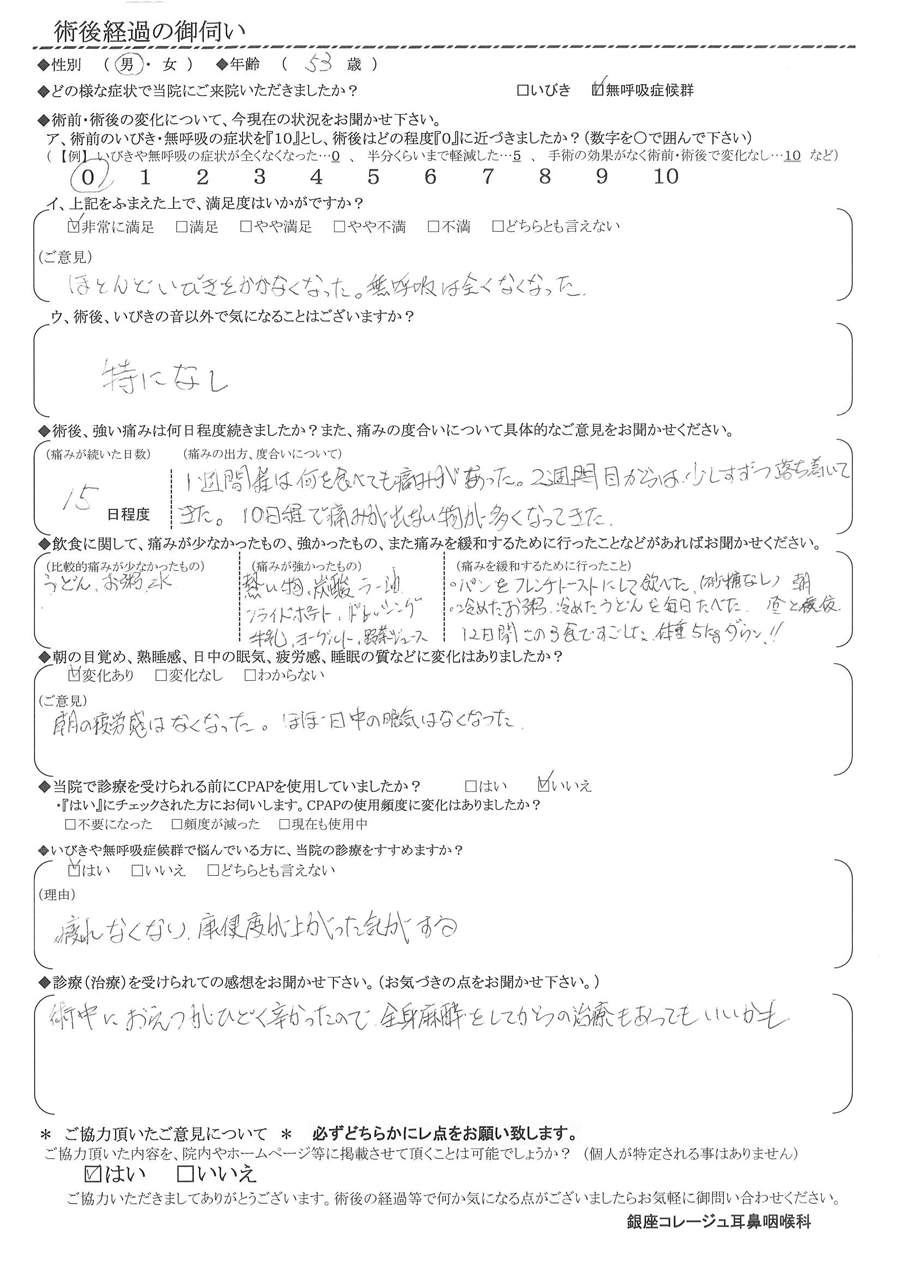 術後経過の御伺い
◆性別 (男・女) ◆年齢 ( 53 歳)
◆どの様な症状で当院にご来院いただきましたか? □いびき ☑無呼吸症候群
◆術前・術後の変化について、今現在の状況をお聞かせ下さい。
ア、術前のいびき・無呼吸の症状を『10』とし、術後はどの程度『0』に近づきましたか?(数字を〇で囲んで下さい)
(【例】いびきや無呼吸の症状が全くなくなった…0 、 半分くらいまで軽減した…5 、 手術の効果がなく術前・術後で変化なし…10 など)
0 1 2 3 4 5 6 7 8 9 10
イ、上記をふまえた上で、満足度はいかがですか?
☑非常に満足 □満足 □やや満足 □やや不満 □不満 □どちらとも言えない
(ご意見)
ほとんどいびきをかかなくなった。無呼吸は全くなくなった.
ウ、術後、いびきの音以外で気になることはございますか?
特になし
◆術後、強い痛みは何日程度続きましたか?また、痛みの度合いについて具体的なご意見をお聞かせください。
(痛みが続いた日数) (痛みの出方、度合いについて)
15 日程度
1週間程は何を食べても痛みがあった。2週間目からは少しずつ落ち着いて
きた。 10日程で痛みが出ない物が多くなってきた.
◆飲食に関して、痛みが少なかったもの、強かったもの、また痛みを緩和するために行ったことなどがあればお聞かせください。
(比較的痛みが少なかったもの)
うどん、お粥、水
(痛みが強かったもの)
熱い物、炭酸、ラー油
フライドポテト、ドレッシング
牛乳、ヨーグルト、野菜ジュース
(痛みを緩和するために行ったこと)
・パンをフレンチトーストにして飲べた.(砂糖なし) 朝
・冷めたお粥、冷めたうどんを毎日たべた. 昼と夜
12日間この3食ですごした、体重5kgダウン!!
◆朝の目覚め、熟睡感、日中の眠気、疲労感、睡眠の質などに変化はありましたか?
☑変化あり □変化なし □わからない
(ご意見)
朝の疲労感はなくなった。ほぼ日中の眠気はなくなった.
◆当院で診療を受けられる前にCPAPを使用していましたか? □はい ☑いいえ
・『はい』にチェックされた方にお伺いします。CPAPの使用頻度に変化はありましたか?
□不要になった □頻度が減った □現在も使用中
◆いびきや無呼吸症候群で悩んでいる方に、当院の診療をすすめますか?
☑はい □いいえ □どちらとも言えない
(理由)
疲れなくなり、 度が上がった気がする
◆診療(治療)を受けられての感想をお聞かせ下さい。(お気づきの点をお聞かせ下さい。)
術中におえつがひどく辛かったので、全身麻酔をしてからの治療もあってもいいかも
* ご協力頂いたご意見について * 必ずどちらかにレ点をお願い致します。
ご協力頂いた内容を、院内やホームページ等に掲載させて頂くことは可能でしょうか? (個人が特定される事はありません)
☑はい □いいえ
ご協力いただきましてありがとうございます。術後の経過等で何か気になる点がございましたらお気軽に御問い合わせください。
銀座コレージュ耳鼻咽喉科